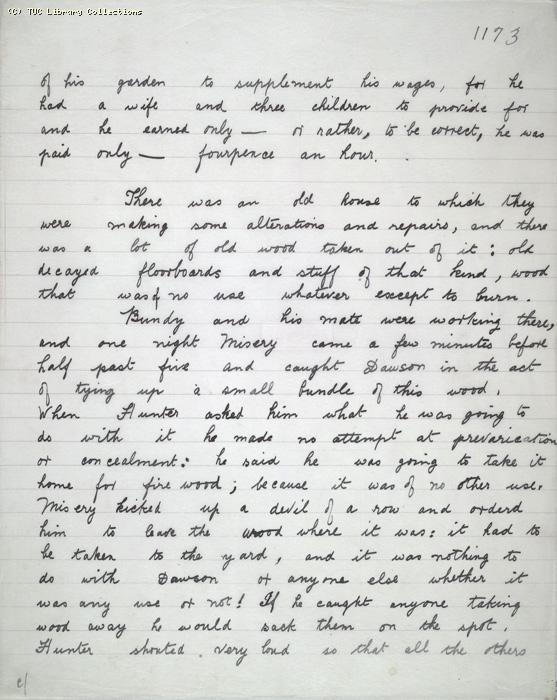 (C) TUC Library Collections
1173
of his garden to supplement his wages, for he
had a wife and three children to provide for
and he earned only — or rather, to be correct, he was
paid only — fourpence an hour.
There was an old house to which they
were making some alterations and repairs, and there
was a lot of old wood taken out of it: old
decayed floorboards and stuff of that kind, wood
that was of no use whatever except to burn.
Bundy and his mate were working there,
and one night Misery came a few minutes before
half past five and caught Dawson in the act
of tying up a small bundle of this wood.
When Hunter asked him what he was going to
do with it he made no attempt at prevarication
or concealment: he said he was going to take it
home for fire wood; because it was of no other use.
Misery kicked up a devil of a row and orderd
him to leave the wood where it was: it had to
be taken to the yard, and it was nothing to
do with Dawson or anyone else whether it
was any use or not! If he caught anyone taking
wood away he would sack them on the spot.
Hunter shouted very loud so that all the others
e/